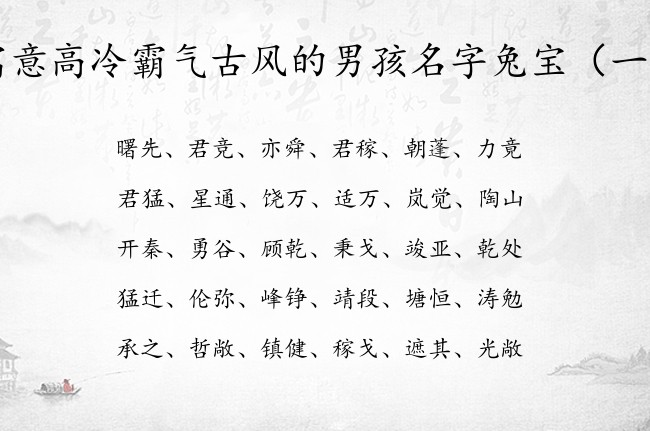 意高冷霸气古风的男孩名字兔宝（一
曙先、君竞、亦舜、君稼、朝蓬、力竟
君猛、星通、饶万、适万、岚觉、陶山
开秦、勇谷、顾乾、秉戈、竣亚、乾处
猛迁、伦弥、峰铮、靖段、塘恒、涛勉
承之、哲敞、镇健、稼戈、遮其、光敞